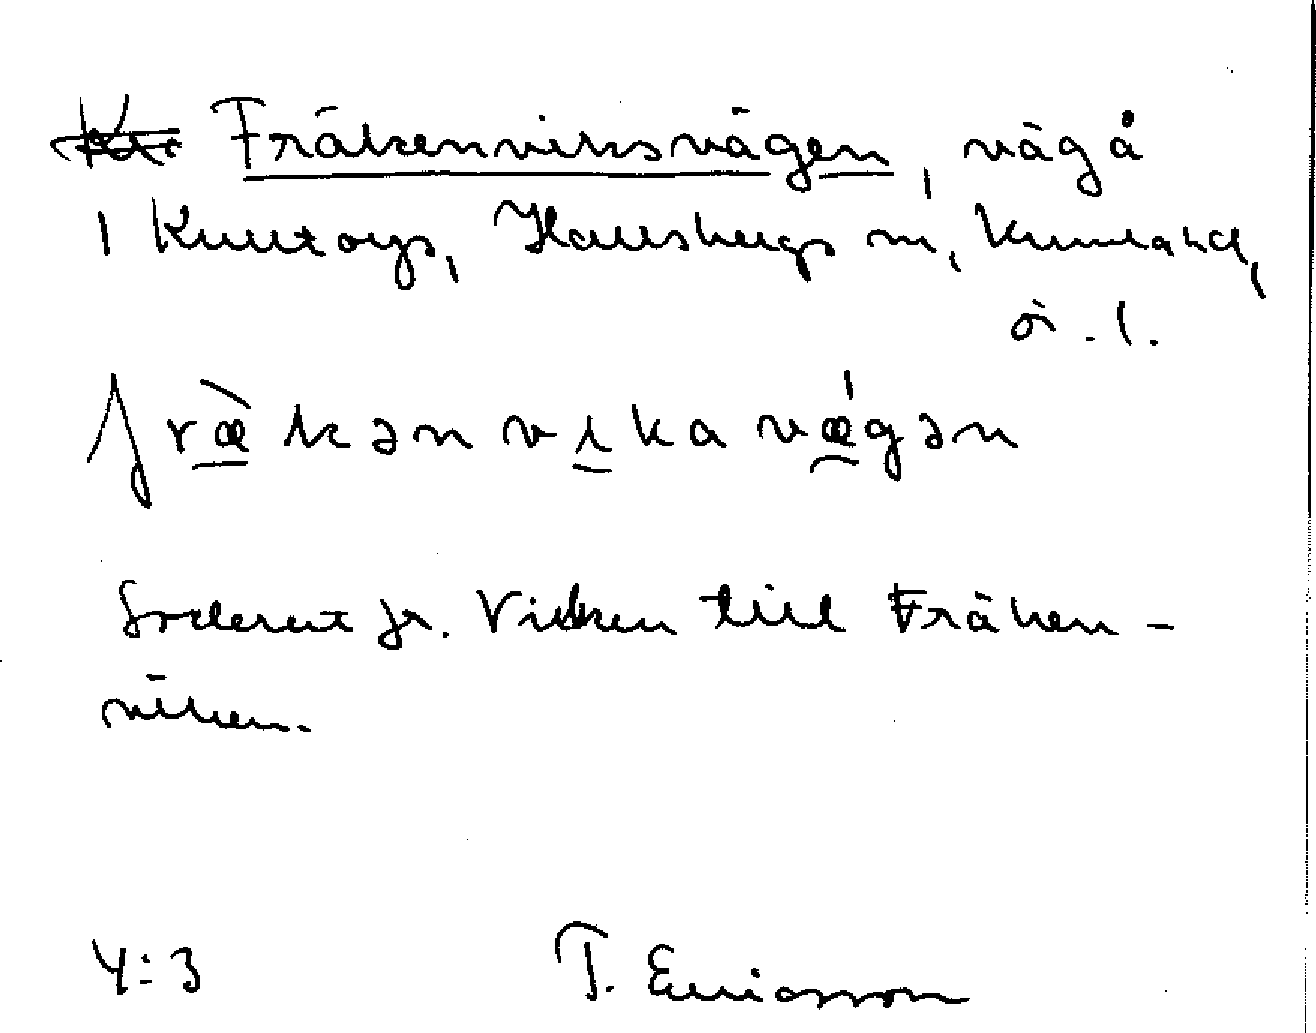 Fräkenviksvägen, väg å
1 Knuttorp, Hallsbergs sn, Kumla hd,
ö. l.
fræ̀kən vika vǽgən
Söderut fr. Viken till Fräken-
viken.
4:3 T. Ericsson